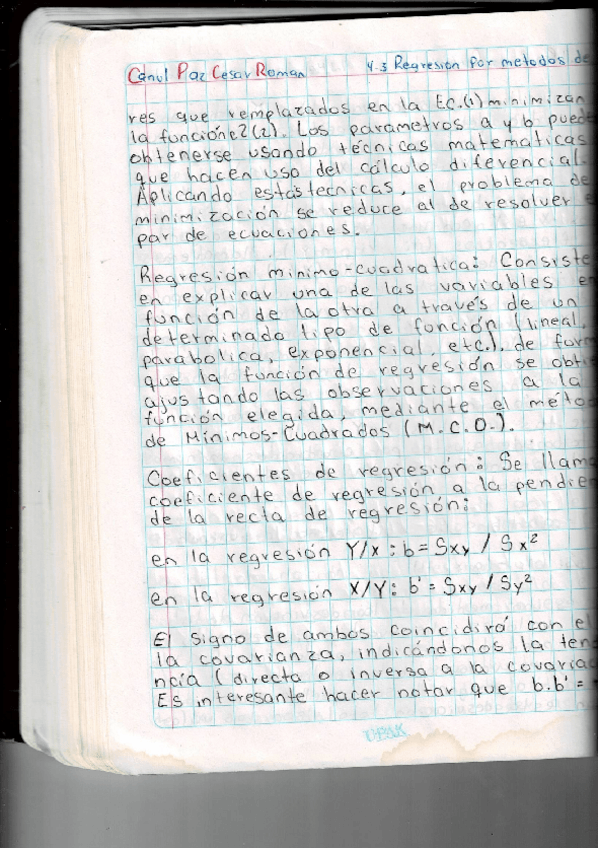 Canul Paz Cesar Roman 4.3 Regresion por metodos de
res que remplazados en la Ec.(1) minimizan
la función c2(2). Los parametros a y b puede
obtenerse usando técnicas matematicas
que hacen uso del cálculo diferencial.
Aplicando estas tecnicas, el problema de
minimización se reduce al de resolver e
par de ecuaciones.
Regresión minimo-cuadratica: Consiste
en explicar una de las variables en
función de la otra a través de un
determinado tipo de función (lineal,
parabolica, exponencial, etc.), de form
que la función de regresión se obti
ajustando las observaciones a la
función elegida, mediante el métod
de Mínimos-Cuadrados (M.C.O.).
Coeficientes de regresión: Se llama
coeficiente de regresión a la pendien
de la recta de regresión:
en la regresión Y/x : b = Sxy / Sx²
en la regresión X/Y: b' = Sxy / Sy²
El signo de ambos coincidirá con el
la covarianza, indicándonos la tend
ncia (directa o inversa a la covariac
Es interesante hacer notar que b.b' =